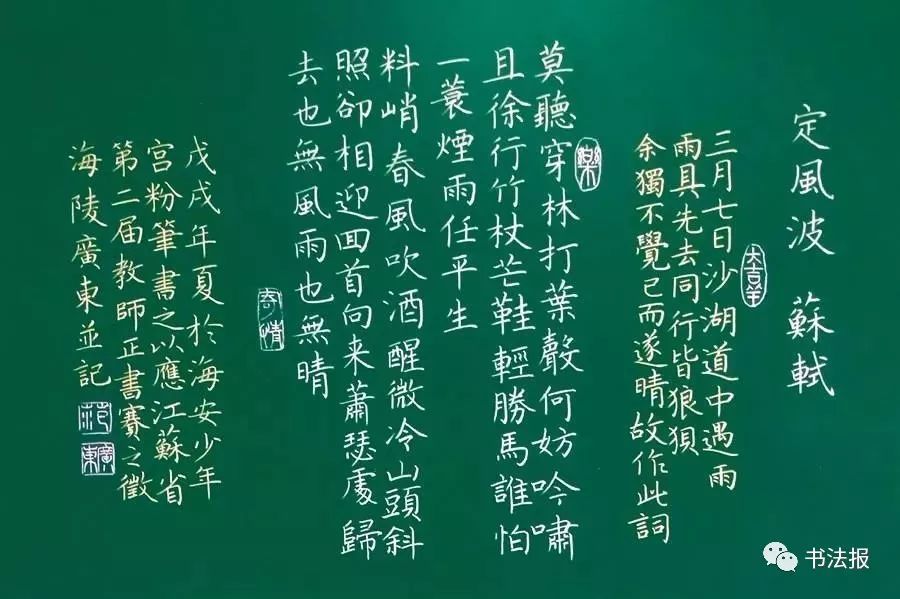 定風波 蘇軾
大吉羊
三月七日沙湖道中遇雨
雨具先去同行皆狼狽
余獨不覺已而遂晴故作此詞
樂
莫聽穿林打葉聲何妨吟嘯
且徐行竹杖芒鞋輕勝馬誰怕
一蓑煙雨任平生
料峭春風吹酒醒微冷山頭斜
照卻相迎回首向来蕭瑟處歸
去也無風雨也無晴
寄情
戊戌年夏於海安少年
宮粉筆書之以應江蘇省
第二届教師正書賽之徵
海陵廣東並記
范
廣東
书法报